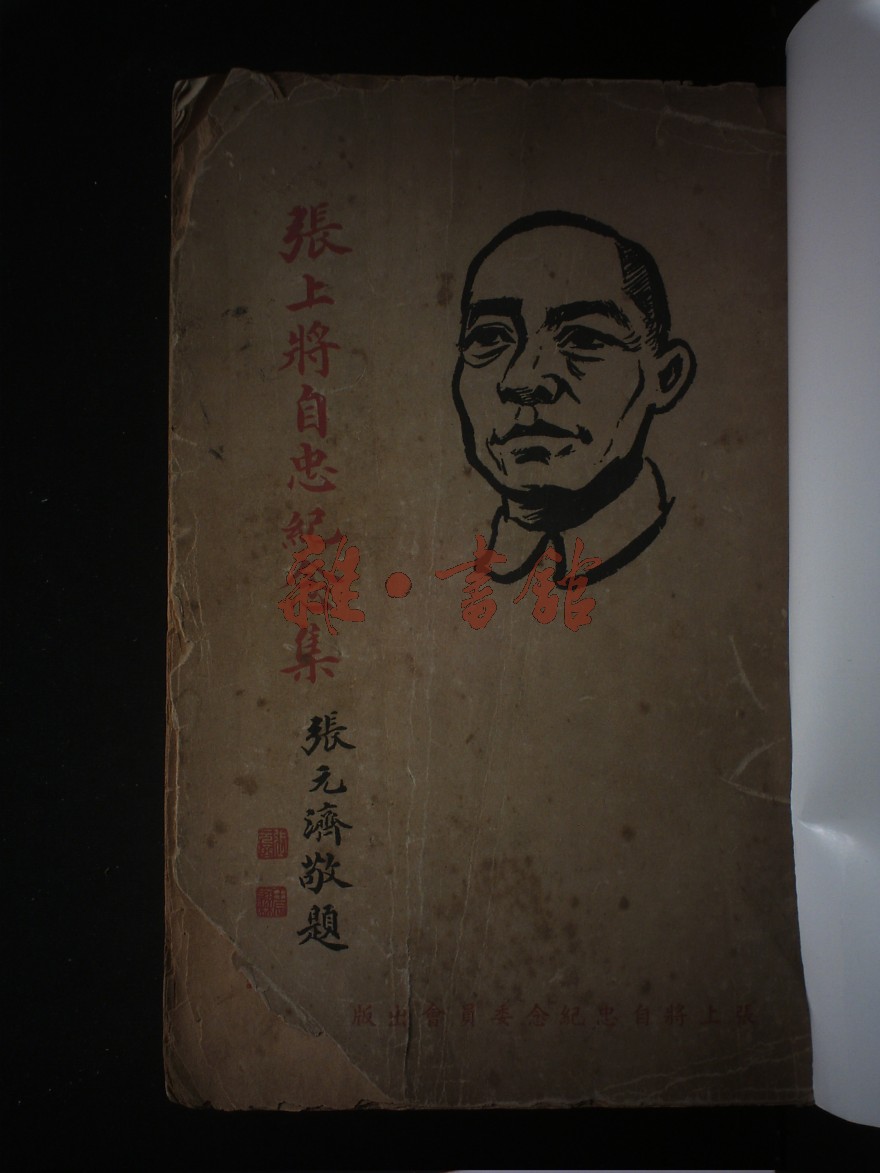 張上將自忠紀念集
張元濟敬題
雜·書館
張上將自忠紀念委員會出版